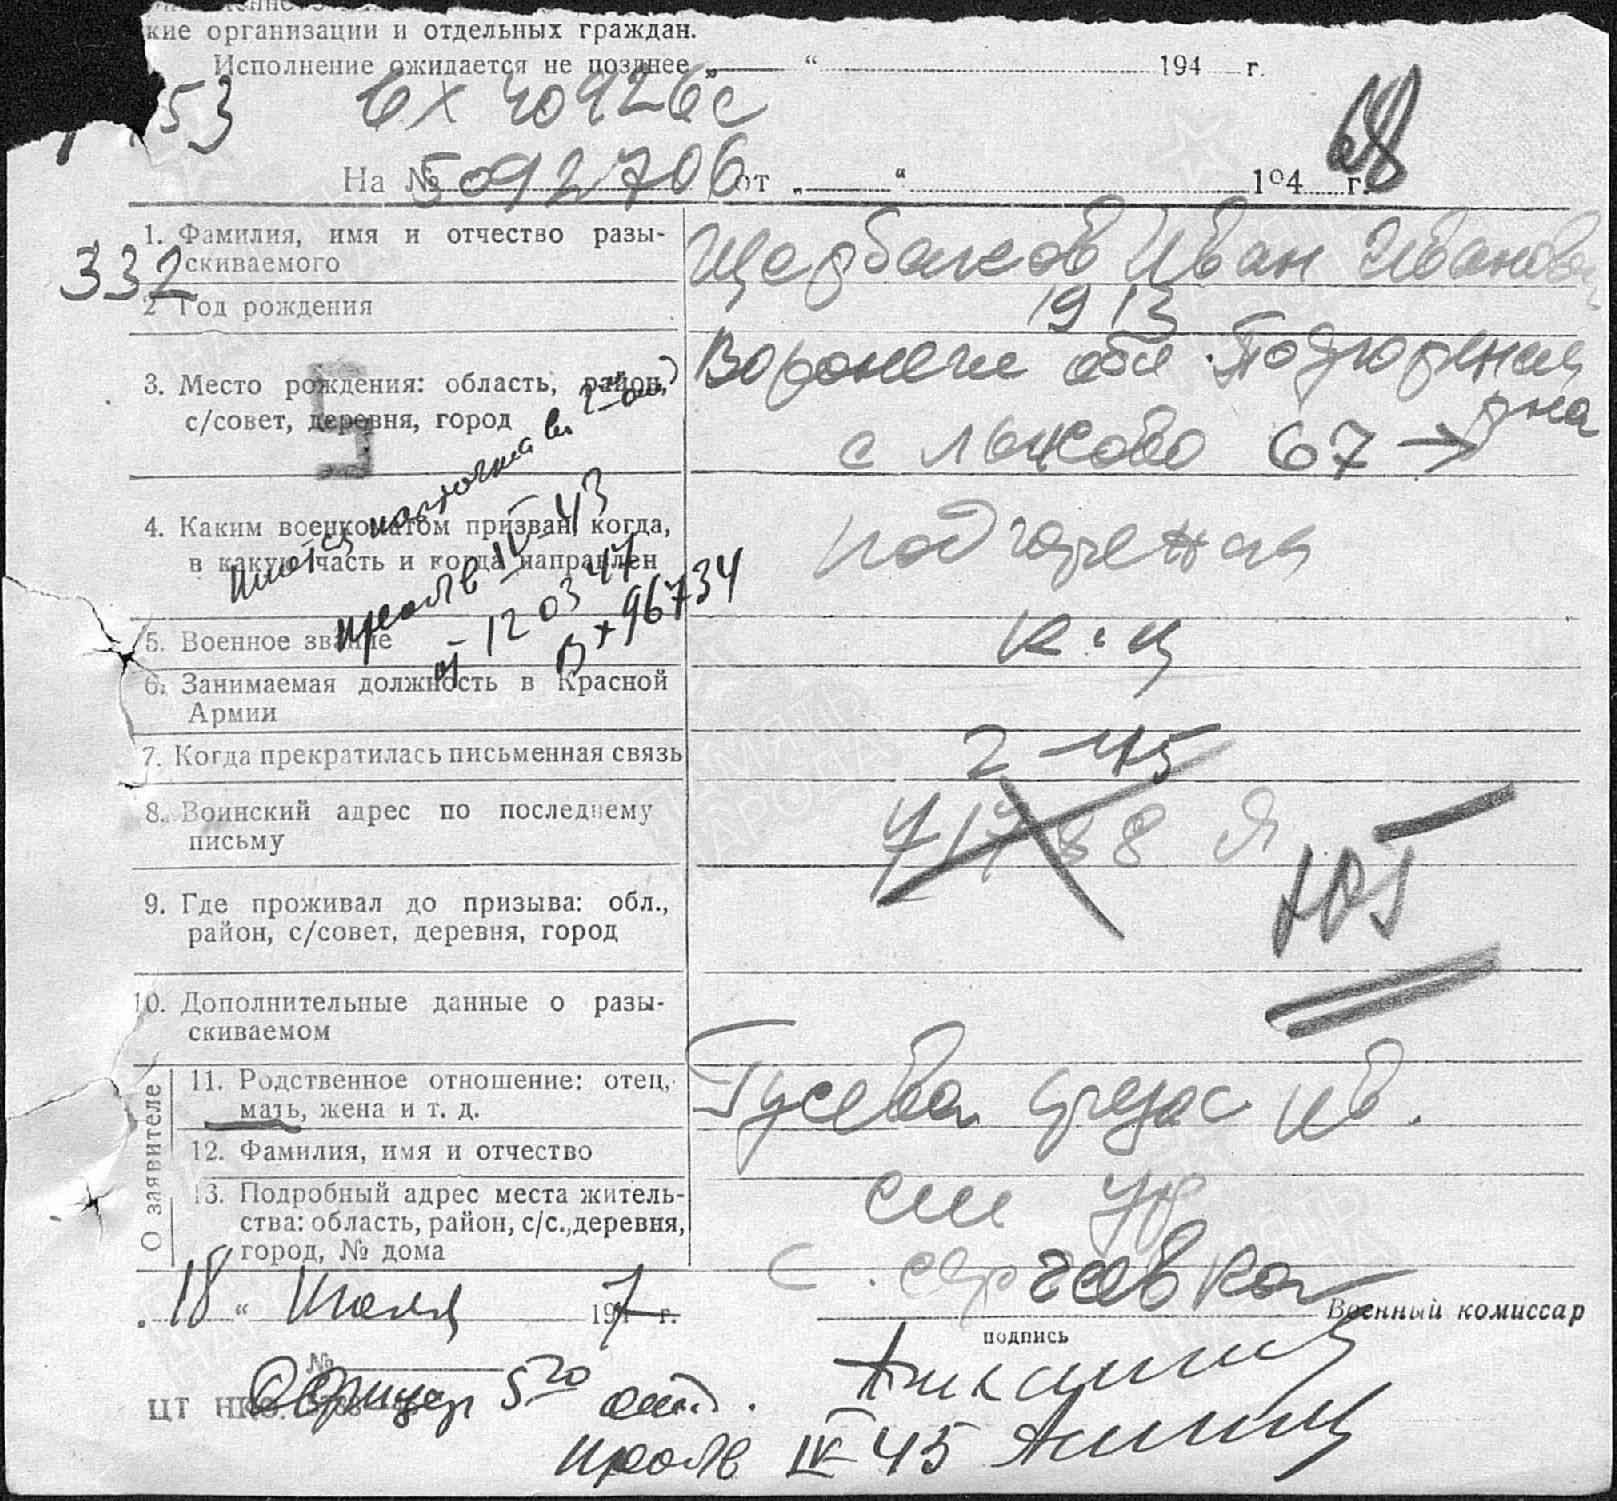 кие организации и отдельных граждан.
Исполнение ожидается не позднее „ “ 194 г.
53 вх 40926с
На № 5092706 от „ “ 194 г.
68
1. Фамилия, имя и отчество разы-
скиваемого
Щербаков Иван Иванов
332
2 Год рождения
1913
3. Место рождения: область, район,
с/совет, деревня, город
Воронеж обл. Подгоренск
рна
с 67 →
4. Каким военкоматом призван, когда,
в какую часть и когда направлен
Подгоренск
карточка
43
от 12 03 47
В х 96734
5. Военное звание
к-ц
6. Занимаемая должность в Красной
Армии
7. Когда прекратилась письменная связь
2-45
8. Воинский адрес по последнему
письму
71788 Я
9. Где проживал до призыва: обл.,
район, с/совет, деревня, город
10. Дополнительные данные о разы-
скиваемом
О заявителе
11. Родственное отношение: отец,
мать, жена и т. д.
Гусева Ив.
12. Фамилия, имя и отчество
13. Подробный адрес места житель-
ства: область, район, с/с., деревня,
город, № дома
см ур
с. Сергеевка
18 “ Июля 197 г.
Военный комиссар
подпись
№
ЦТ НКО.
Офицер 5го отд.
IV 45